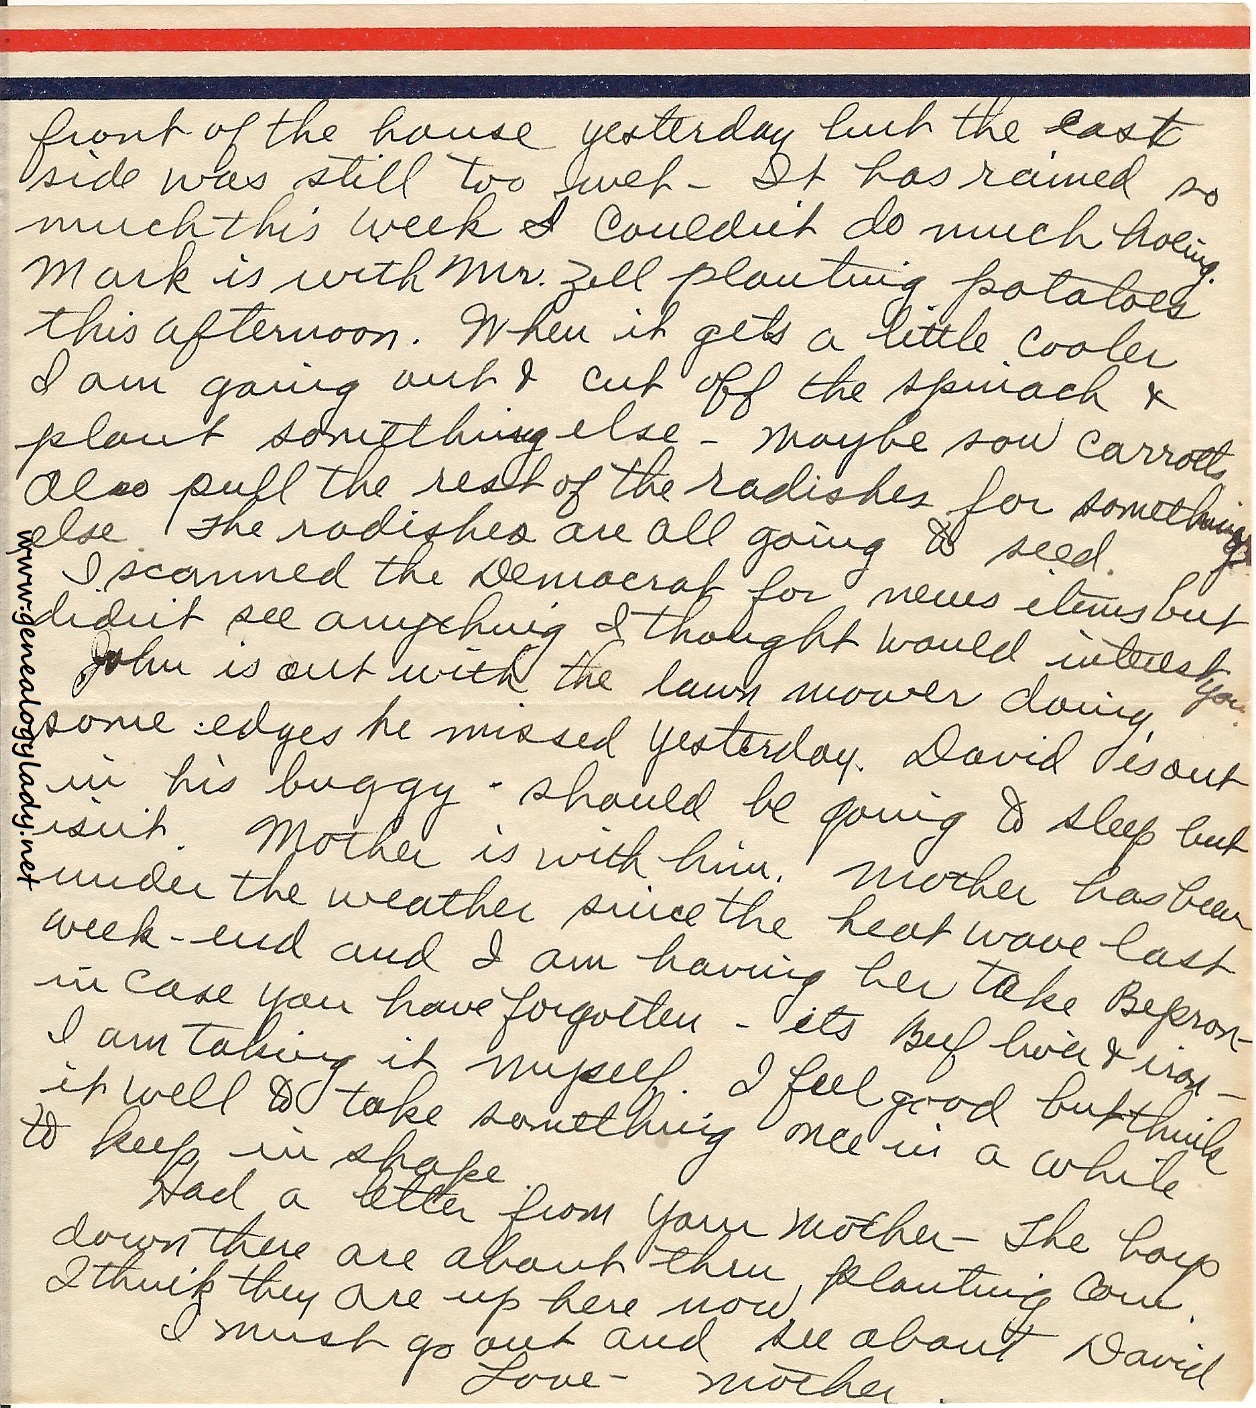 front of the house yesterday but the east
side was still too wet - It has rained so
much this week I couldn't do much hoeing.
Mark is with Mr. Zell planting potatoes
this afternoon. When it gets a little cooler
I am going out & cut off the spinach &
plant something else - maybe sow carrotts
Also pull the rest of the radishes for something
else. The radishes are all going to seed.
I scanned the Democrat for news items but
didn't see anything I thought would interest you.
John is out with the lawn mower doing
some edges he missed yesterday. David is out
in his buggy - should be going to sleep but
isn't. Mother is with him. Mother has been
under the weather since the heat wave last
week-end and I am having her take Bepron-
in case you have forgotten - its Beef liver & iron -
I am taking it myself. I feel good but think
it well to take something once in a while
to keep in shape.
Had a letter from your mother - The boys
down there are about thru planting corn.
I think they are up here now.
I must go out and see about David
Love - Mother.
www.genealogylady.net